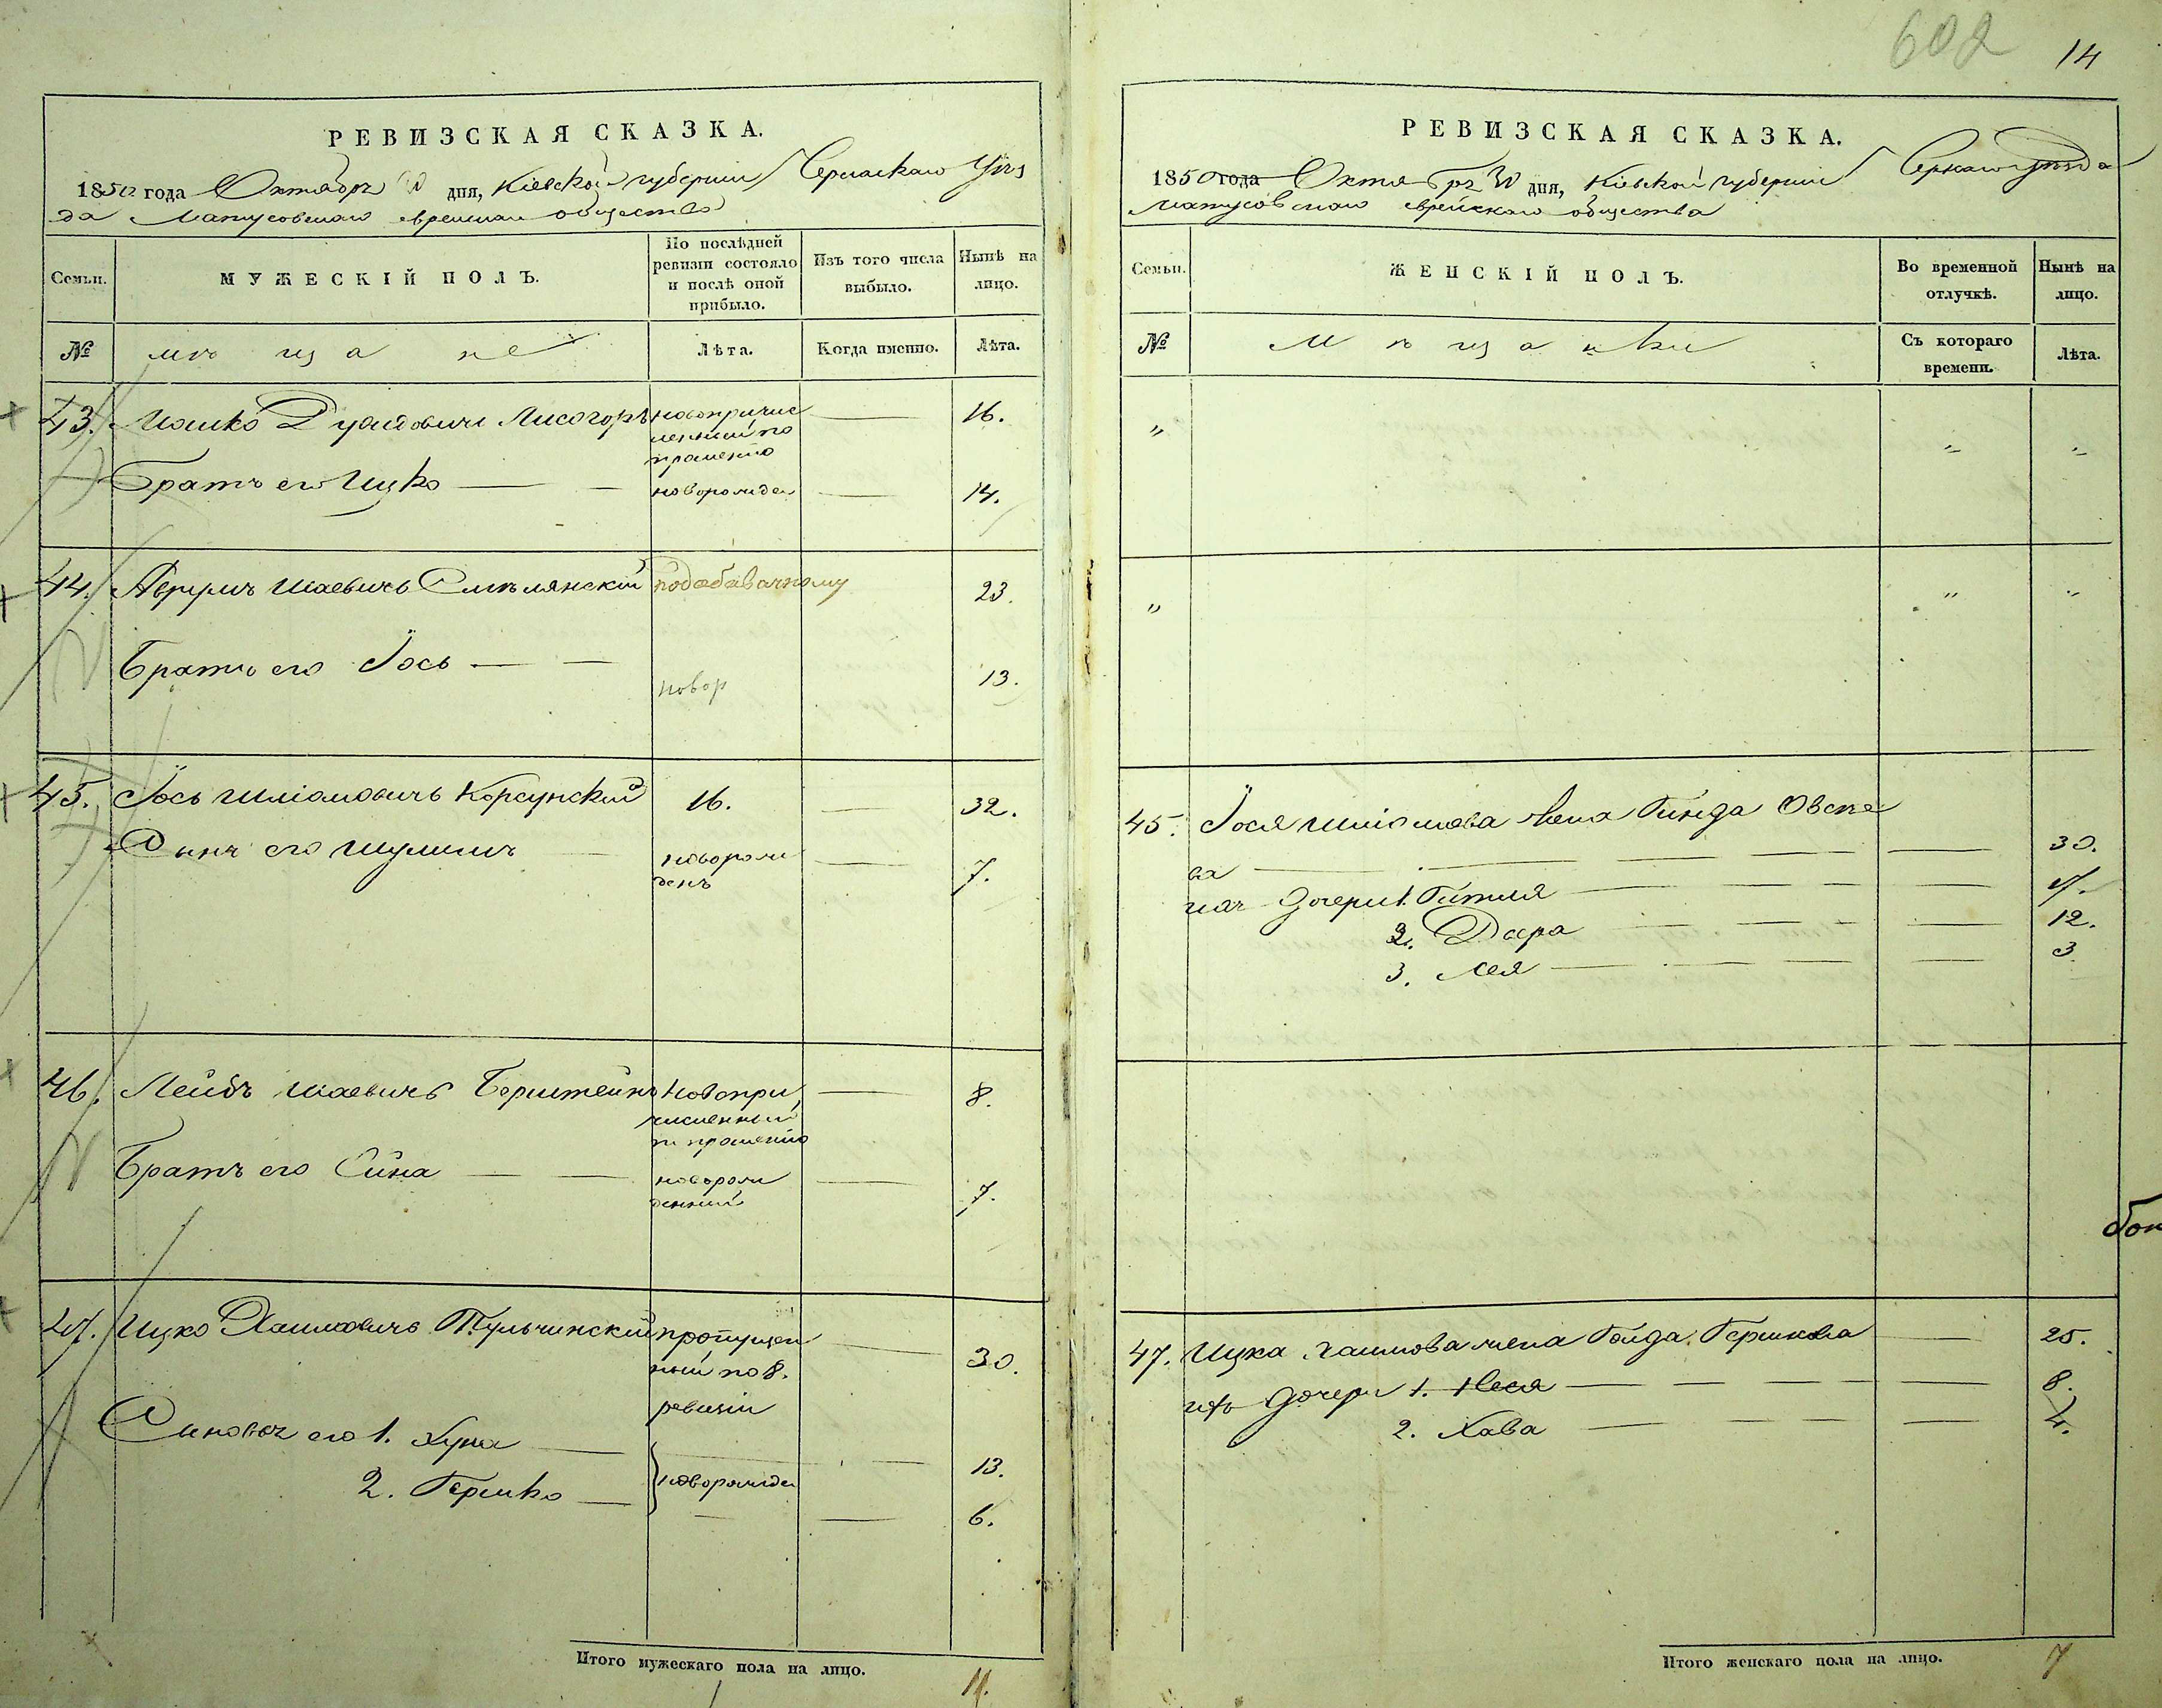 602 14
РЕВИЗСКАЯ СКАЗКА.
1850 года Октября 30 дня, Кіевской губерніи Черкаскаго Уѣз
да Матусовскаго еврейскаго общества
Семьи.
МУЖЕСКІЙ ПОЛЪ.
По послѣдней ревизіи состояло и послѣ оной прибыло.
Изъ того числа выбыло.
Нынѣ на лицо.
№ мѣщане Лѣта. Когда именно. Лѣта.
43. Мошко Дувидовичъ Лисогоръ новопричис — 16.
ленный по
прошенію
Братъ его Ицко — — новорожден — 14.
44. Аврумъ Шаевичъ Смѣлянскій 23.
Братъ его Іось — — новор 13.
45. Іось Шліомовичъ Корсунскій 16. — 32.
Сынъ его Шулимъ — новорож — 7.
денъ
46. Лейбъ Шаевичъ Берштейнъ Новопри — 8.
численный
по прошенію
Братъ его Сина — — новорож — 7.
денный
47. Ицко Хаимовичъ Тульчинскій пропущен — 30.
ный по 8.
ревизіи
Сыновья его 1. Хуна — — 13.
2. Гершко — новорожден — 6.
Итого мужескаго пола на лицо. 11.
РЕВИЗСКАЯ СКАЗКА.
1850 года Октября 30 дня, Кіевской губерніи Черкаскаго уѣзда
Матусовскаго еврейскаго общества
Семьи.
ЖЕНСКІЙ ПОЛЪ.
Во временной отлучкѣ.
Нынѣ на лицо.
№ Мѣщанки Съ котораго времени. Лѣта.
" " "
" " "
45. Іося Шліомова жена Гинда Овсѣе
ва — — — — — — 30.
ихъ дочери 1. Гитля — — — — 17.
2. Двера — — — — 12.
3. Лея — — — — 3
47. Ицка Хаимова жена Голда Гершкова — 25.
ихъ дочери 1. Неся — — — — 8.
2. Хава — — — — 4.
Итого женскаго пола на лицо. 7